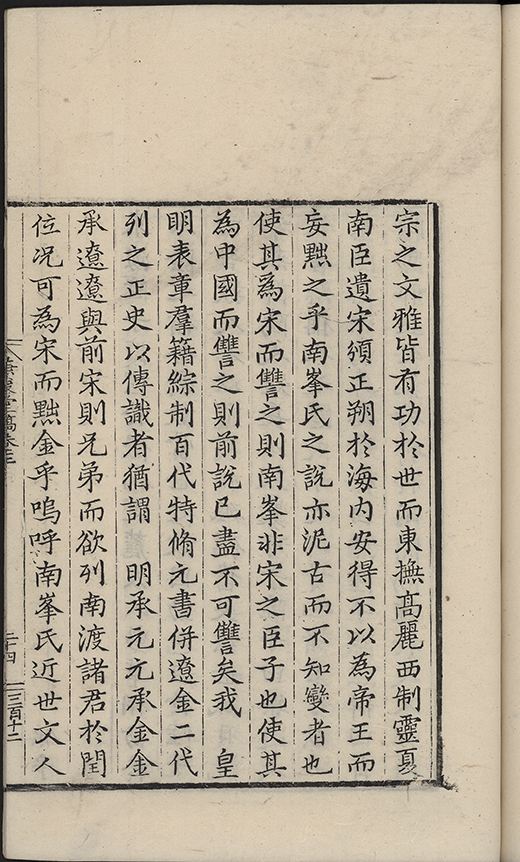 宗之文雅皆有功於世而東撫高麗西制靈夏
南臣遺宋頒正朔於海内安得不以為帝王而
妄黜之乎南峯氏之說亦泥古而不知變者也
使其為宋而讐之則南峯非宋之臣子也使其
為中國而讐之則前説已盡不可讐矣我　皇
明表章羣籍綜制百代特脩元書併遼金二代
列之正史以傳識者猶謂　明承元元承金金
承遼遼與前宋則兄弟而欲列南渡諸君於閏
位况可為宋而黜金乎嗚呼南峯氏近世文人
二十四
三百十二